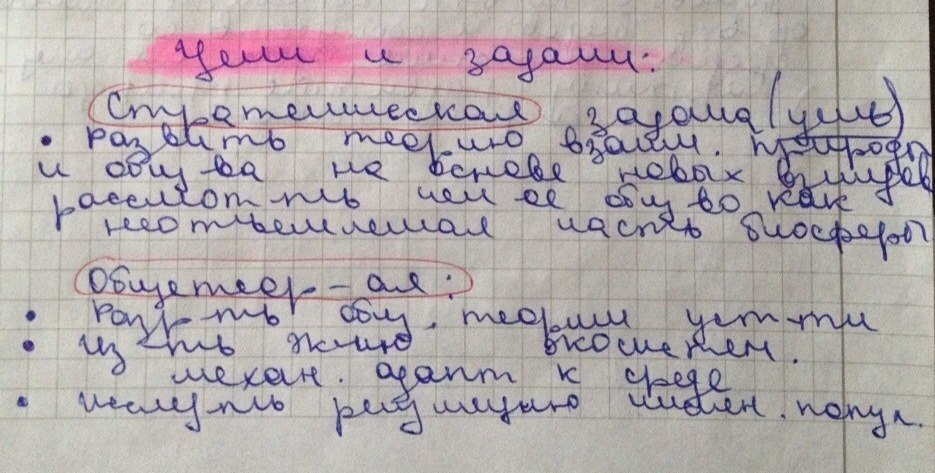 Цели и задачи:
Стратегическая задача (цель)
• развить теорию взаим. природы
и общ-ва на основе новых взглядов
рассмот-ть чел-ое общ-во как
неотъемлемая часть биосферы
Общетеор-ая:
• разр-ть общ. теории уст-ти
• из-ть экосистем.
механ. адапт к среде
• регуляцию числен. попул.